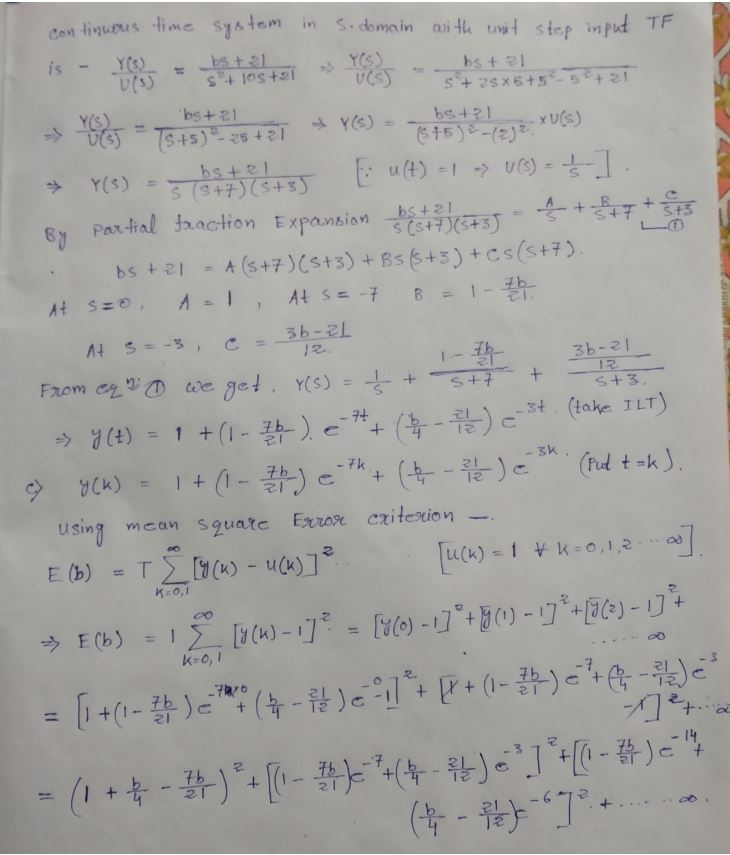 continuous time system in s-domain with unit step input TF
is - Y(s)/U(s) = (bs+21)/(s²+10s+21) ⇒ Y(s)/U(s) = (bs+21)/(s²+2s×5+5²-5²+21)
⇒ Y(s)/U(s) = (bs+21)/((s+5)²-25+21) ⇒ Y(s) = (bs+21)/((s+5)²-(2)²) × U(s)
⇒ Y(s) = (bs+21)/(s(s+7)(s+3)) [∵ u(t) = 1 ⇒ U(s) = 1/s].
By Partial fraction Expansion (bs+21)/(s(s+7)(s+3)) = A/s + B/(s+7) + C/(s+3) ①
bs+21 = A(s+7)(s+3) + Bs(s+3) + Cs(s+7).
At s=0, A = 1, At s=-7 B = 1 - 7b/21.
At s=-3, C = (3b-21)/12.
From eqn ① we get, Y(s) = 1/s + (1 - 7b/21)/(s+7) + ((3b-21)/12)/(s+3).
⇒ y(t) = 1 + (1 - 7b/21). e^-7t + (b/4 - 21/12) e^-3t. (take ILT)
c) y(k) = 1 + (1 - 7b/21) e^-7k + (b/4 - 21/12) e^-3k. (Put t=k).
Using mean square Error criterion —.
E(b) = T ∑_{k=0,1}^∞ [y(k) - u(k)]². [u(k) = 1 ∀ k=0,1,2 ... ∞].
⇒ E(b) = 1 ∑_{k=0,1}^∞ [y(k) - 1]² = [y(0) - 1]² + [y(1) - 1]² + [y(2) - 1]² +
...... ∞
= [1 + (1 - 7b/21) e^-7×0 + (b/4 - 21/12) e^-0 - 1]² + [1 + (1 - 7b/21) e^-7 + (b/4 - 21/12) e^-3
-1]² + ... ∞
= (1 + b/4 - 7b/21)² + [(1 - 7b/21) e^-7 + (b/4 - 21/12) e^-3]² + [(1 - 7b/21) e^-14 +
(b/4 - 21/12) e^-6]² + ...... ∞.